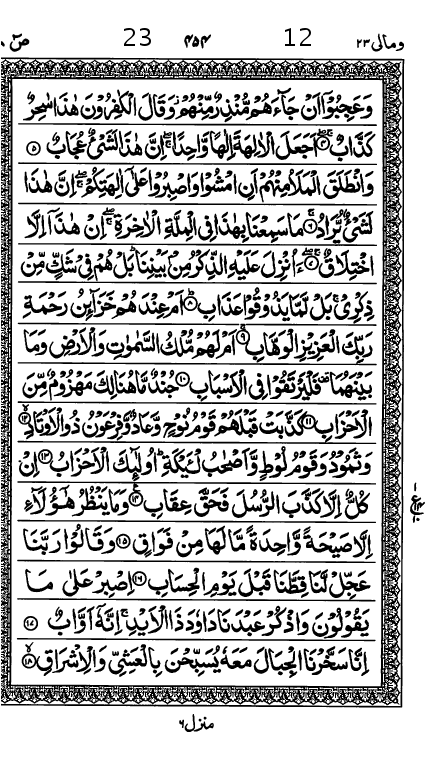 ومالی ۲۳ 12 ۴۵۴ 23 صٓ ۳۸
وَعَجِبُوْۤا اَنْ جَآءَهُمْ مُّنْذِرٌ مِّنْهُمْ ۫ وَقَالَ الْكٰفِرُوْنَ هٰذَا سٰحِرٌ
كَذَّابٌ ۴ اَجَعَلَ الْاٰلِهَةَ اِلٰهًا وَّاحِدًا ۚ اِنَّ هٰذَا لَشَیْءٌ عُجَابٌ ۵
وَانْطَلَقَ الْمَلَاُ مِنْهُمْ اَنِ امْشُوْا وَاصْبِرُوْا عَلٰۤی اٰلِهَتِكُمْ ۚ اِنَّ هٰذَا
لَشَیْءٌ یُّرَادُ ۶ مَا سَمِعْنَا بِهٰذَا فِی الْمِلَّةِ الْاٰخِرَةِ ۚ اِنْ هٰذَاۤ اِلَّا
اخْتِلَاقٌ ۷ ءَاُنْزِلَ عَلَیْهِ الذِّكْرُ مِنْۢ بَیْنِنَا ؕ بَلْ هُمْ فِیْ شَكٍّ مِّنْ
ذِكْرِیْ ۚ بَلْ لَّمَّا یَذُوْقُوْا عَذَابِ ۸ اَمْ عِنْدَهُمْ خَزَآئِنُ رَحْمَةِ
رَبِّكَ الْعَزِیْزِ الْوَهَّابِ ۹ اَمْ لَهُمْ مُّلْكُ السَّمٰوٰتِ وَالْاَرْضِ وَمَا
بَیْنَهُمَا ۫ فَلْیَرْتَقُوْا فِی الْاَسْبَابِ ۱۰ جُنْدٌ مَّا هُنَالِكَ مَهْزُوْمٌ مِّنَ
الْاَحْزَابِ ۱۱ كَذَّبَتْ قَبْلَهُمْ قَوْمُ نُوْحٍ وَّعَادٌ وَّفِرْعَوْنُ ذُو الْاَوْتَادِ ۱۲
وَثَمُوْدُ وَقَوْمُ لُوْطٍ وَّاَصْحٰبُ لْـَٔیْكَةِ ؕ اُولٰٓئِكَ الْاَحْزَابُ ۱۳ اِنْ
كُلٌّ اِلَّا كَذَّبَ الرُّسُلَ فَحَقَّ عِقَابِ ۱۴ وَمَا یَنْظُرُ هٰۤؤُلَآءِ
اِلَّا صَیْحَةً وَّاحِدَةً مَّا لَهَا مِنْ فَوَاقٍ ۱۵ وَقَالُوْا رَبَّنَا
عَجِّلْ لَّنَا قِطَّنَا قَبْلَ یَوْمِ الْحِسَابِ ۱۶ اِصْبِرْ عَلٰی مَا
یَقُوْلُوْنَ وَاذْكُرْ عَبْدَنَا دَاوٗدَ ذَا الْاَیْدِ ۚ اِنَّهٗۤ اَوَّابٌ ۱۷
اِنَّا سَخَّرْنَا الْجِبَالَ مَعَهٗ یُسَبِّحْنَ بِالْعَشِیِّ وَالْاِشْرَاقِ ۱۸
منزل ۶